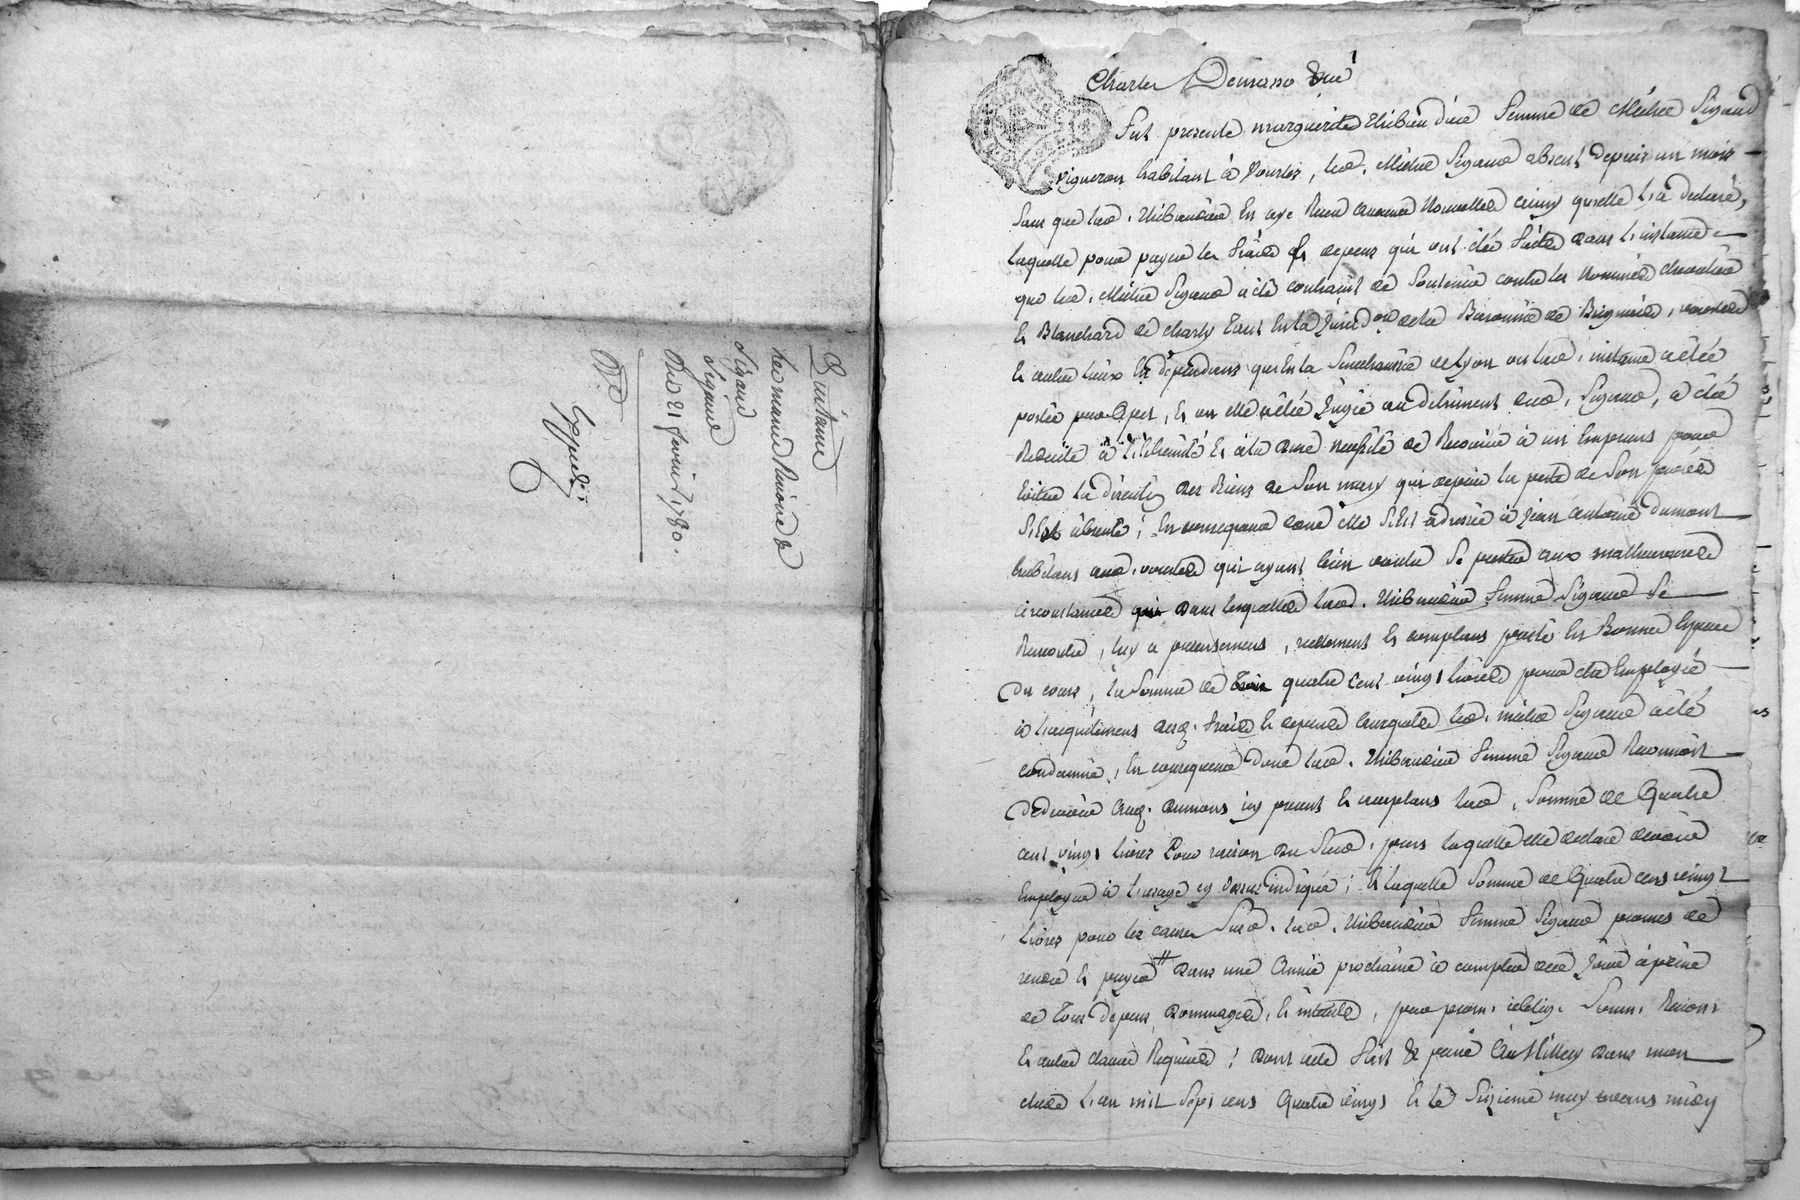 Quittance
Sigaud
Sigaud
Du 21 fevrier 1780.
Expedié
fut presente marguerite Thibaudiée femme de Michel Sigaud
vigneron habitant à Vourles, led. Michel Sigaud absent depuis un mois
sans que lad. Thibaudiée en aye Receu aucunes Nouvelles ainsy quelle l'a declaré,
laquelle pour payer les fraix et depens qui ont été faits dans l'instance
que led. Michel Sigaud a été contraint de soutenir contre les Nommés
et Blanchard de charly tant en la Jurid.on de la Baronnie de Brignais, vourles
et autres lieux en dependans qu'en la Senechaussée de Lyon ou lad. instance a été
portée par apel, et ou elle a été Jugée au detriment dud. Sigaud, a été
Reduite à l'extremité et à la dure necessité de Recourir à un Emprunt pour
Eviter la discution des Biens de son mary qui depuis la perte de son procès
s'est absenté ; En consequence elle s'est adressée à Jean antoine dumont
habitant aud. vourles qui ayant bien voulu se preter aux malheureuses
circonstances dans lesquelles lad. Thibaudiée femme Sigaud se
Rencontre, luy a presentement, reellement et comptant preté en Bonnes Especes
du cours, la somme de quatre cent vingt livres pour etre Employée
à l'acquitement desd. fraix et depens auxquels led. michel Sigaud a été
condamné, En consequence donc lad. Thibaudiée femme Sigaud Reconnoit
devoir aud. dumont icy present et acceptant lad. somme de Quatre
cent vingt livres pour raison du pret, laquelle elle declare devoir
Employer à l'usage cy dessus indiqué ; et laquelle somme de Quatre cent vingt
livres pour les causes susd. lad. Thibaudiée femme Sigaud promet de
rendre et payer # dans une Année prochaine à compter de ce jour à peine
de tous depens, dommages, et interets, pour prom. oblig. soum. Renon.
et autres clauses Requises ; dont acte fait & passé à Millery dans mon
etude l'an mil sept cent Quatre vingt et le Sizieme may avant midy